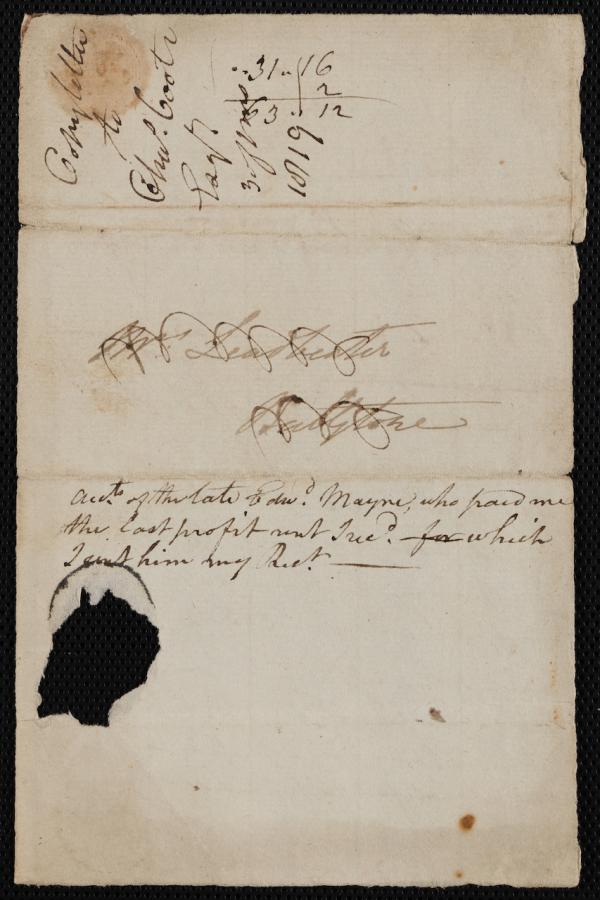 Copy letter
to
Chas. Coote
Esqr
3rd
1819
31 " 16
2
63 " 12
Mrs
acct. of the late Edwd. Mayne, who paid me
the last profit rent I recd. for which
I sent him my Rect.